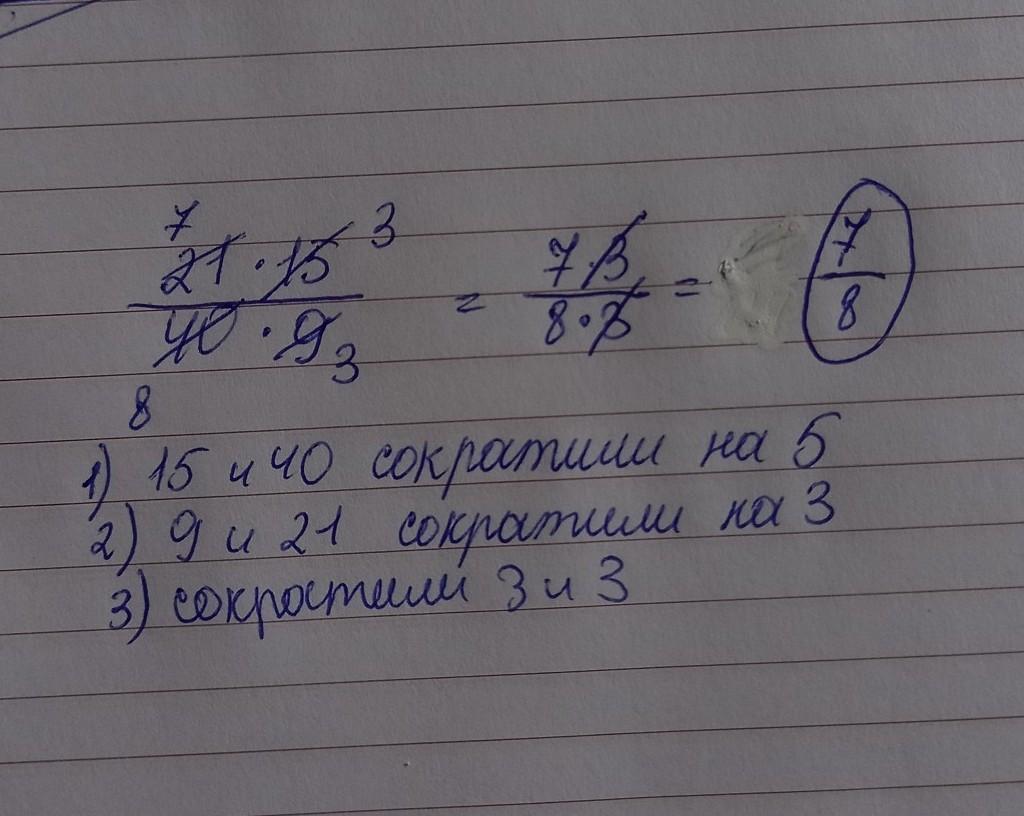 7 3
21 · 15 / 40 · 9 = 7 · 3 / 8 · 3 = 7 / 8
8 3
1) 15 и 40 сократили на 5
2) 9 и 21 сократили на 3
3) сократили 3 и 3